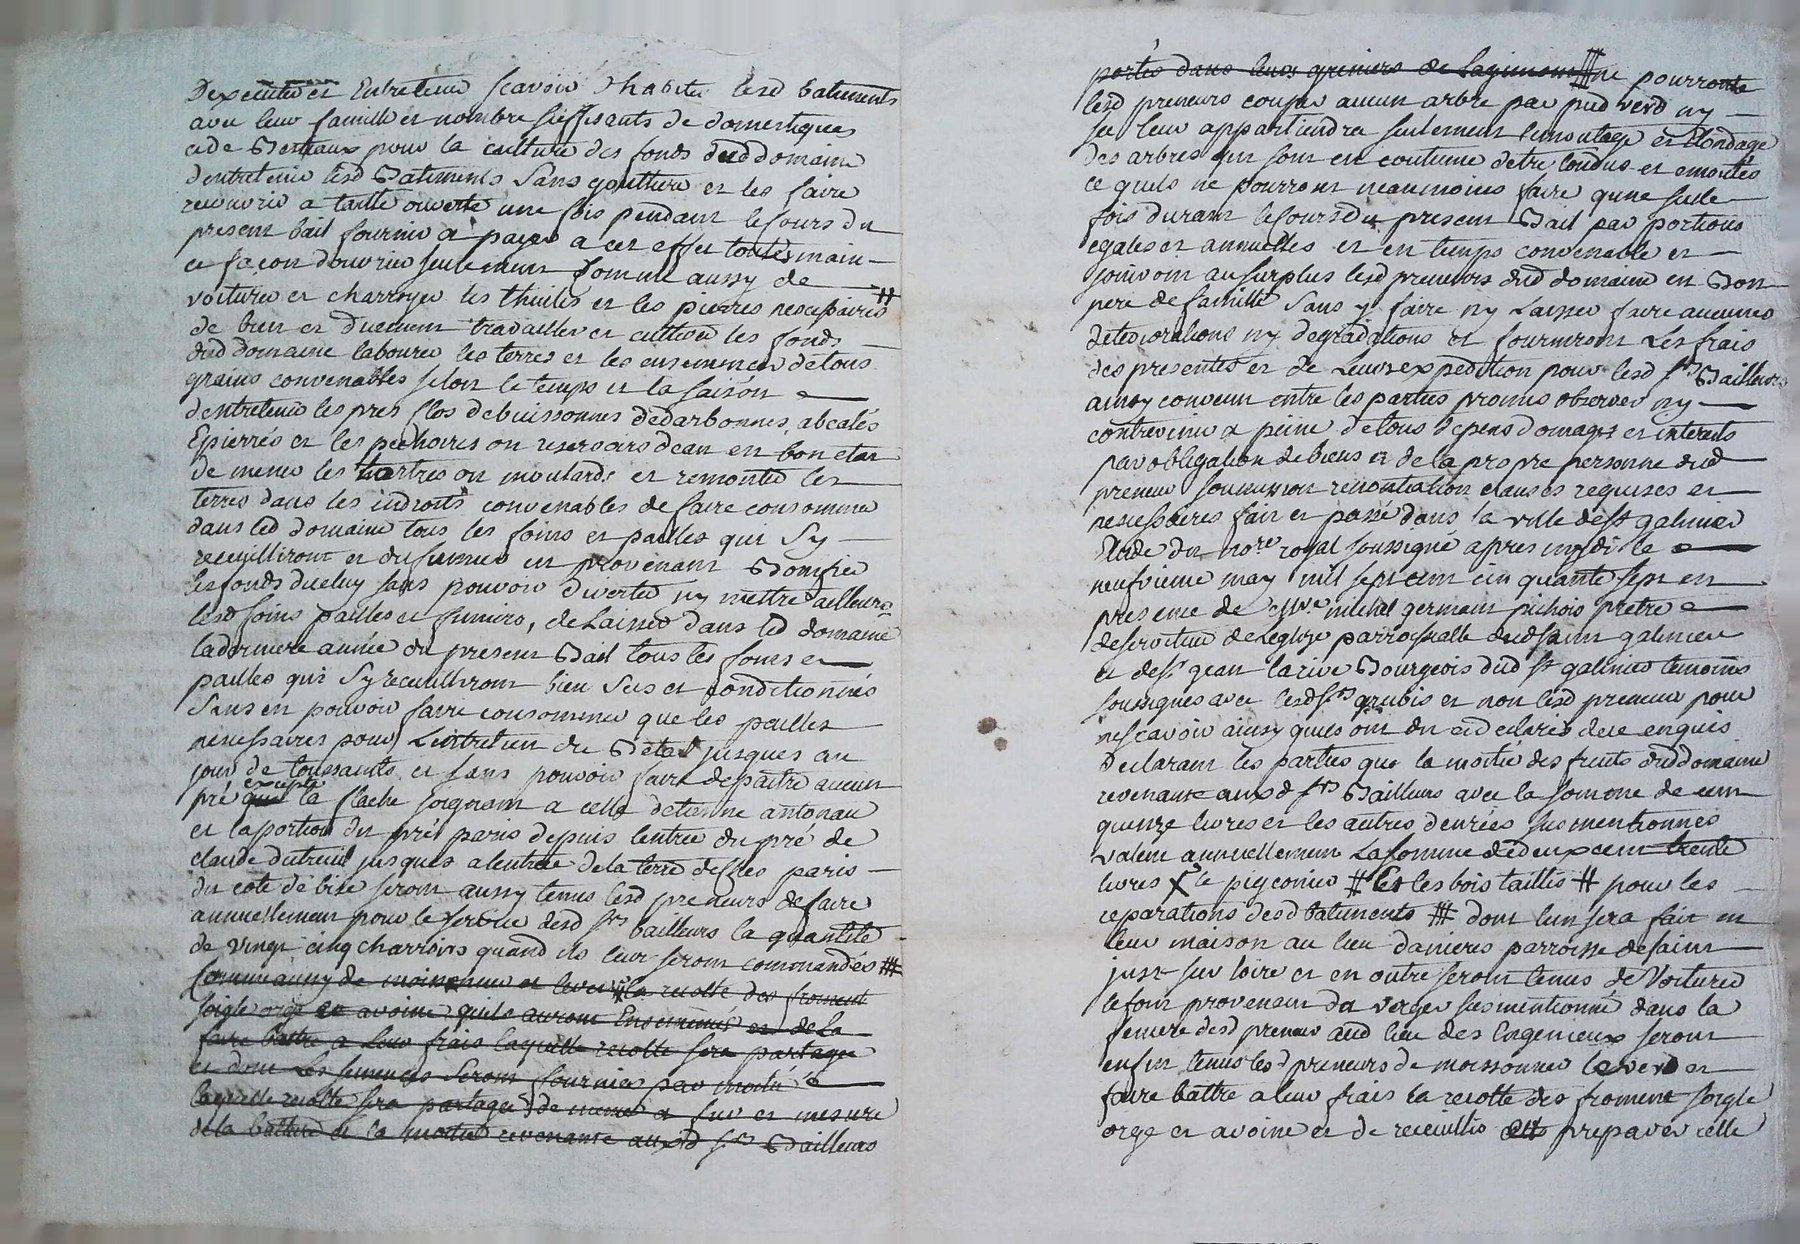 D'executer et Entretenir scavoir d'habiter lesd batiments
avec leur famille et nombre suffisants de domestiques
et de Bestiaux pour la culture des fonds dud domaine
d'entretenir lesd Batiments sans gouttiere et les faire
recouvrir a taille ouverte une fois pendant le cours du
present bail fournir et payer a cet effet toutes main
et façon d'ouvrier seulement comme aussy de
voiturer et charroyer les thuiles et les pierres necessaires #
de bien et duement travailler et cultiver les fonds
dud domaine labourer les terres et les ensemencer de tous
grains convenables selon le temps et la saison
d'entretenir les pres clos debuissonnés dedarbonnés, abealés
Epierrés et les pechoires ou reservoirs d'eau en bon etat
de meme les tertres ou moutards et remonter les
terres dans les endroits convenables de faire consommer
dans led domaine tous les foins et pailles qui sy
recueilliront et du fumier en provenant Bonifier
les fonds diceluy sans pouvoir divertir ny mettre ailleurs
lesd foins pailles et fumiers, de Laisser dans led domaine
la derniere année du present Bail tous les foins et
pailles qui sy recueilliront bien secs et conditionnés
sans en pouvoir faire consommer que les pailles
necessaires pour L'entretien du Betail jusques au
jour de toussaints et sans pouvoir faire depaitre aucun
pré excepté la flache joignant a celle detienne antonau
et la portion du pré paris depuis lentrée du pré de
claude dutreuil jusques a lentrée de la terre desdes paris
du coté de bise seront aussy tenus lesd preneurs de faire
annuellement pour le service desd srs bailleurs la quantité
de vingt cinq charroirs quand ils leur seront commandés #
comme aussy de moissonner et lever la recolte des froment
soigle orge et avoine quils auront Ensemencés et de la
faire battre a leur frais laquelle recolte sera partagée
et dont les semences seront fournies par moitié
laquelle recolte sera partagée de meme a fur et mesure
de la batture et la moitié revenante auxd srs Bailleurs
portée dans leurs greniers de # ne pourront
lesd preneurs couper aucun arbre par pied verd ny
sec leur appartiendra seulement l'emoutage et Elondage
des arbres qui sont en coutume detre tondus et emoutés
ce quils ne pourront neanmoins faire qune seule
fois durant le cours du present Bail par portions
egales et annuelles et en temps convenable et
jouiront au surplus lesd preneurs dud domaine en Bon
pere de famille sans y faire ny Laisser faire aucunes
deteriorations ny degradations et fourniront Les frais
des presentes et de Leur expedition pour lesd srs Bailleurs
ainsy convenu entre les parties promis observer ny
contrevenir a peine de tous depens domages et interets
par obligation de biens et de la propre personne dud
preneur soumission renontiation clauses requises et
necessaires fait et passé dans la ville de st galmier
Etude du nore royal soussigné apres mydi le
neufvieme may mil sept cent cinquante sept en
presence de Mre michel germain pichois pretre
deserviteur de leglize parroissialle dud saint galmier
et de sr jean larive Bourgeois dud st galmier temoins
soussignés avec lesd srs grubis et non lesd preneur pour
ne scavoir ainsy quils ont dit et declaré de ce enquis
declarant les parties que la moitié des fruits dud domaine
revenante auxd srs Bailleurs avec la somme de cent
quinze livres et les autres denrées susmentionnés
valent annuellement La somme de deux cent trente
livres X le pigeonier # Et les bois taillis # pour les
reparations desd batiments # dont lun sera fait en
leur maison au lieu danieres parroisse de saint
just sur loire et en outre seront tenus de voiturer
le foin provenant du verger susmentionné dans la
feniere desd preneur aud lieu des lagenieux seront
enfin tenus lesd preneurs de moissonner lever et
faire battre a leur frais la recolte des froment soigle
orge et avoine et de receuillir et preparer celle